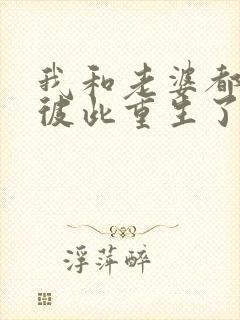 我和老婆都
彼此重生了
浮萍醉